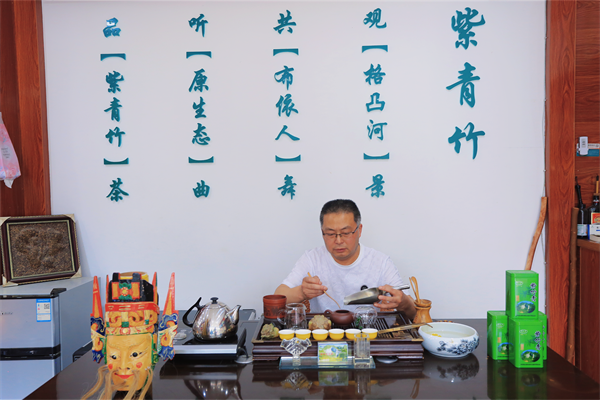 紫青竹
观【格凸河】景
共【布依人】舞
听【原生态】曲
品【紫青竹】茶